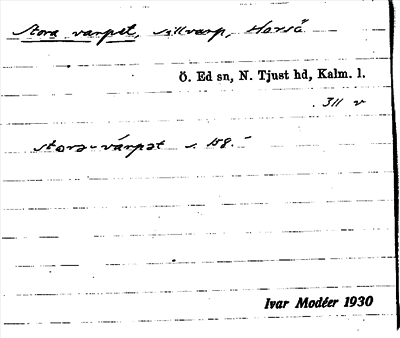 Stora varpet, sillvarp, Horsö
Ö. Ed sn, N. Tjust hd, Kalm. l.
311 v
stora-várpət s. 158.
Ivar Modéer 1930